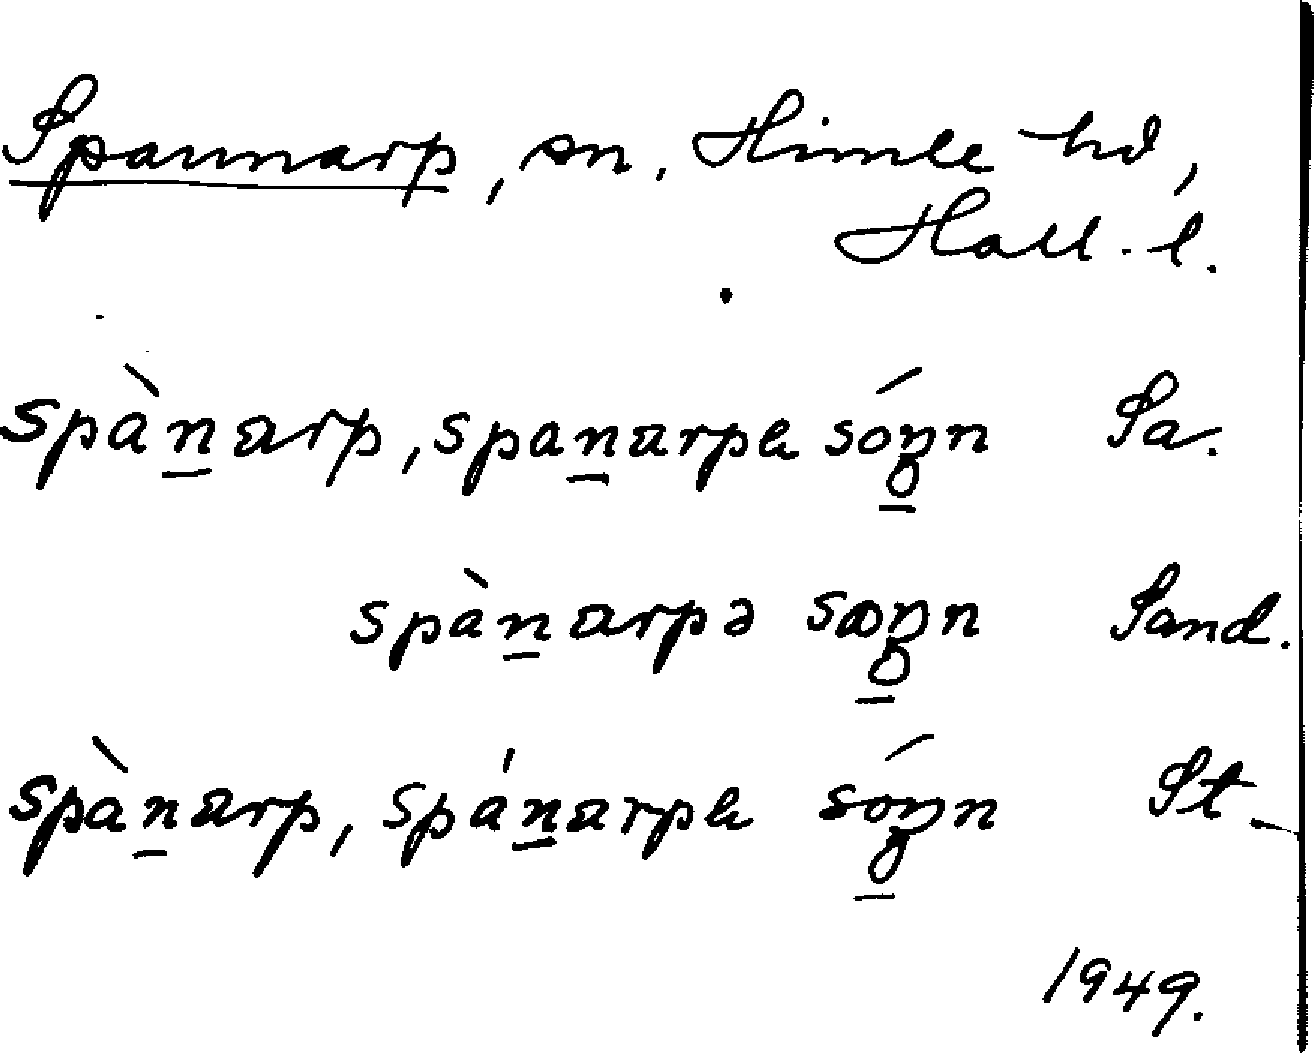 Spannarp, sn, Himle hd,
Hall. l.
spànarp, spanarpa sóɡn Sa.
spànarpə sɷɡn Sand.
spànarp, spánarpa sóɡn St.
1949.